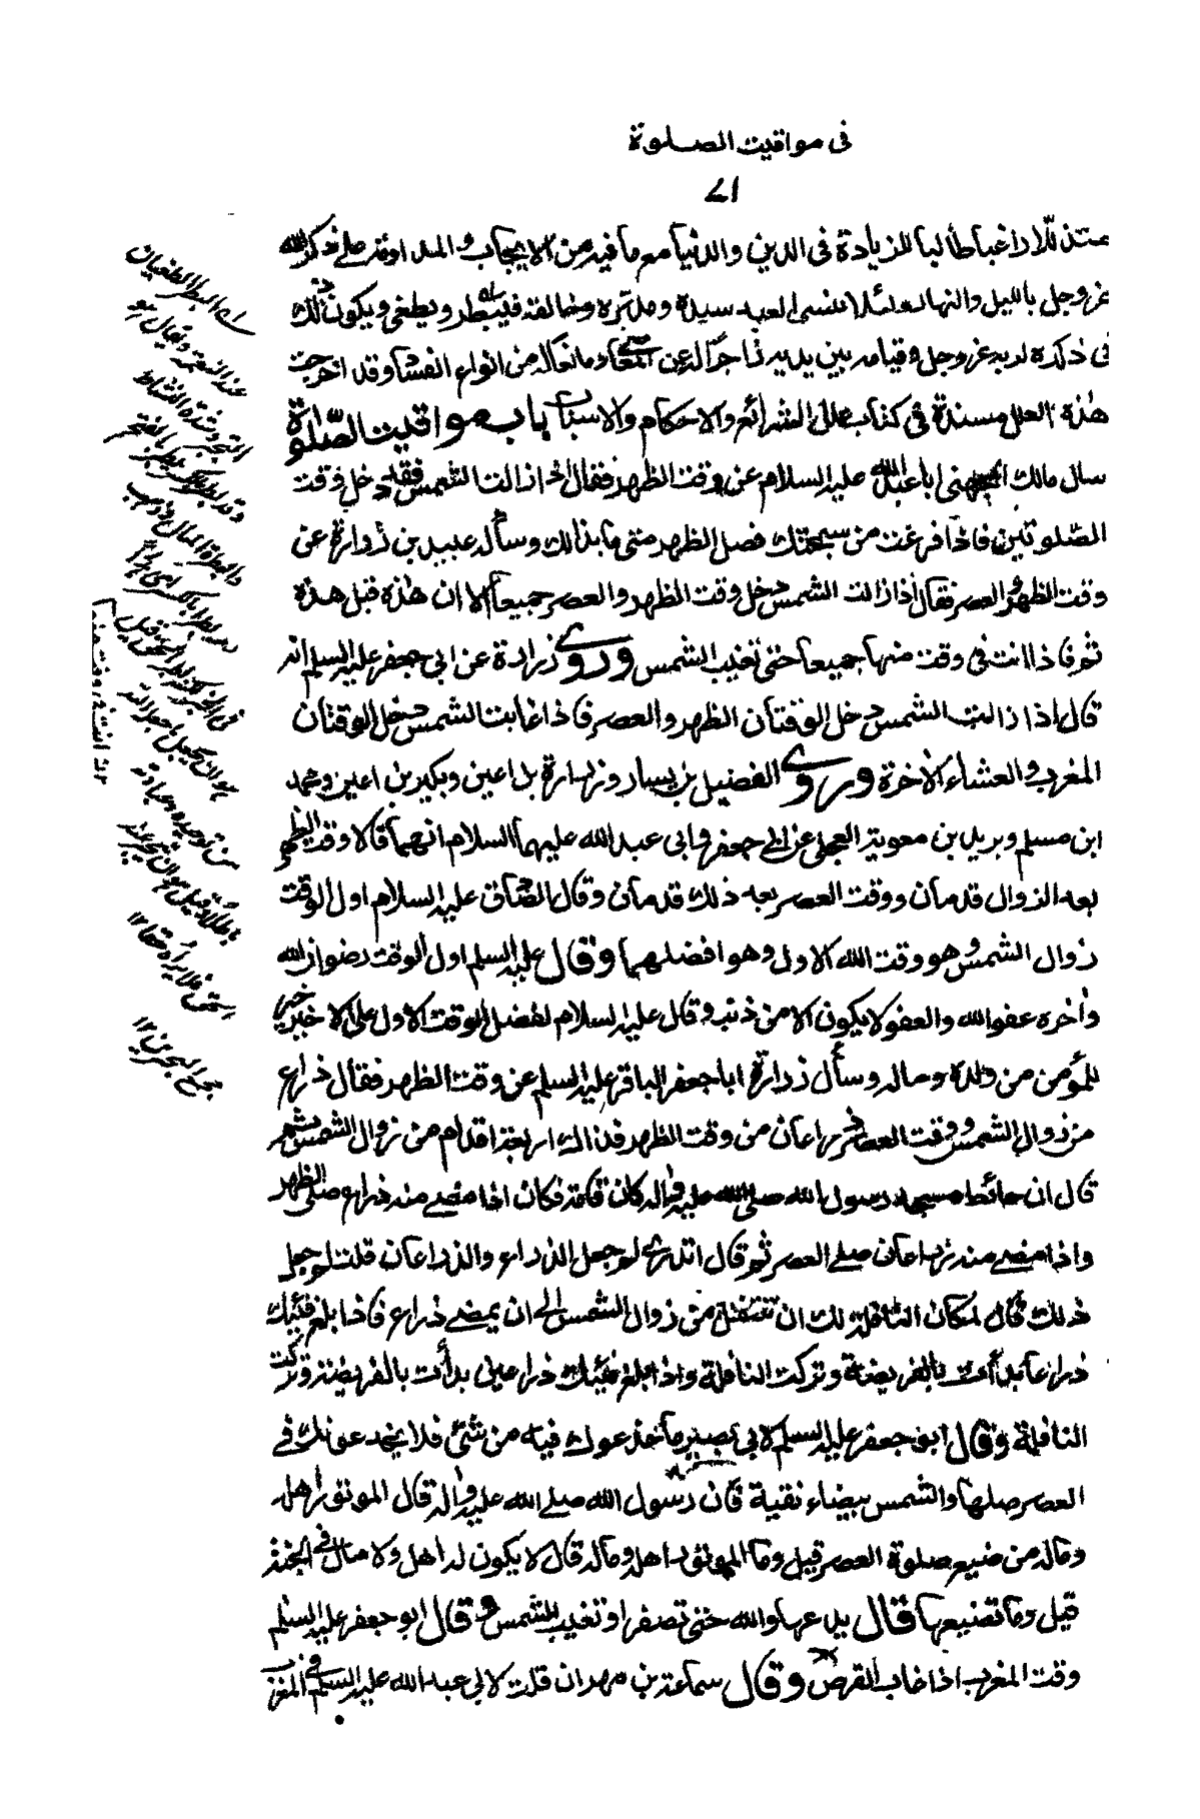 فى مواقيت الصلوة
٧١
متذللا راغبا طالبا للزيادة فى الدين والدنيا مع ما فيه من الايجاب والمداومة على ذكر الله
عز وجل بالليل والنهار لئلا ينسى العبد سيده ومدبره وخالقه فيبطر ويطغى ويكون ذلك
فى ذكره لربه عز وجل وقيامه بين يديه زاجرا له عن المعاصى ومانعا له من انواع الفساد وقد اخرجت
هذه العلل مسندة فى كتاب علل الشرائع والاحكام والاسباب باب مواقيت الصلوة
سال مالك الجهنى ابا عبد الله عليه السلام عن وقت الظهر فقال اذا زالت الشمس فقد دخل وقت
الصلوتين فاذا فرغت من سبحتك فصل الظهر متى ما بدا لك وسأله عبيد بن زرارة عن
وقت الظهر والعصر فقال اذا زالت الشمس دخل وقت الظهر والعصر جميعا الا ان هذه قبل هذه
ثم فاذا انت فى وقت منها جميعا حتى تغيب الشمس وروى زرارة عن ابى جعفر عليه السلم انه
قال اذا زالت الشمس دخل الوقتان الظهر والعصر فاذا غابت الشمس دخل الوقتان
المغرب والعشاء الاخرة وروى الفضيل بن يسار وزرارة بن اعين وبكير بن اعين ومحمد
ابن مسلم وبريد بن معوية العجلى عن ابى جعفر وابى عبد الله عليهما السلام انهما قالا وقت الظهر
بعد الزوال قدمان ووقت العصر بعد ذلك قدمان وقال الصادق عليه السلام اول الوقت
زوال الشمس وهو وقت الله الاول وهو افضلهما وقال عليه السلم اول الوقت رضوان الله
وأخره عفو الله والعفو لا يكون الا من ذنب وقال عليه السلام لفضل الوقت الاول على الاخير خير
للمؤمن من ولده وماله وسأل زرارة ابا جعفر الباقر عليه السلم عن وقت الظهر فقال ذراع
من زوال الشمس ووقت العصر ذراعان من وقت الظهر فذاك اربعة اقدام من زوال الشمس ثم
قال ان حائط مسجد رسول الله صلى الله عليه واله كان قامة فكان اذا مضى منه ذراع صلى الظهر
واذا مضى منه ذراعان صلى العصر ثم قال اتدرى لم جعل الذراع والذراعان قلت لم جعل
ذلك قال لمكان النافلة لك ان تتنفل من زوال الشمس الى ان يمضى ذراع فاذا بلغ فيئك
ذراعا بدأت بالفريضة وتركت النافلة واذا بلغ فيئك ذراعين بدأت بالفريضة وتركت
النافلة وقال ابو جعفر عليه السلم لابى بصير ما خدعوك فيه من شئ فلا يخدعونك فى
العصر صلها والشمس بيضاء نقية فان رسول الله صلى الله عليه واله قال الموتور اهله
وماله من ضيع صلوة العصر قيل وما الموتور اهله وماله قال لا يكون له اهل ولا مال فى الجنة
قيل وما تضييعها قال يدعها والله حتى تصفر او تغيب الشمس وقال ابو جعفر عليه السلم
وقت المغرب اذا غاب القرص وقال سماعة بن مهران قلت لابى عبد الله عليه السلم فى المغرب
البطر الطغيان
عند النعمة ويقال هو
التجبر وشدة النشاط
مجمع البحرين ١٢